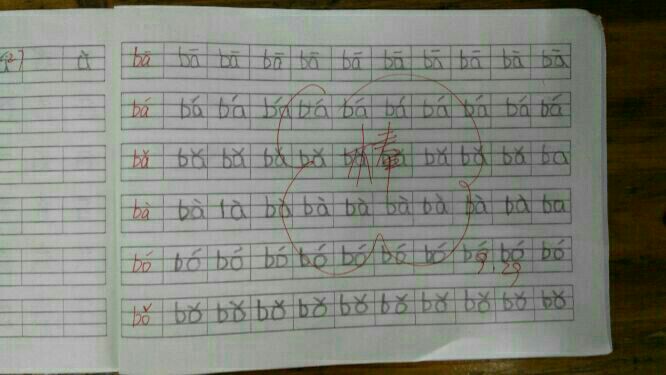 à
bā bā bā bā bā bā bā bā bā bā bā
bá bá bá bá bá bá bá bá bá bá bá
bǎ bǎ bǎ bǎ bǎ bǎ bǎ bǎ bǎ ba
bà bà là bà bà bà bà bà bà bà ba
bó bó bó bó bó bó bó bó bó bó bó
bǒ bǒ bǒ bǒ bǒ bǒ bǒ bǒ bǒ bǒ bǒ
棒
9.29